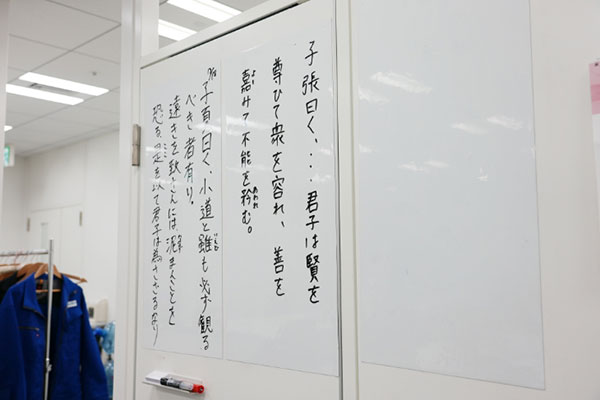 子張曰く、…君子は賢を
尊びて衆を容れ、善を
嘉みて不能を矜む。
よ
あわれ
子夏曰く、小道と雖も必ず観る
いえども
べき者有り。
遠きを致さんには泥まんことを
恐る。是を以て君子は為さざるなり